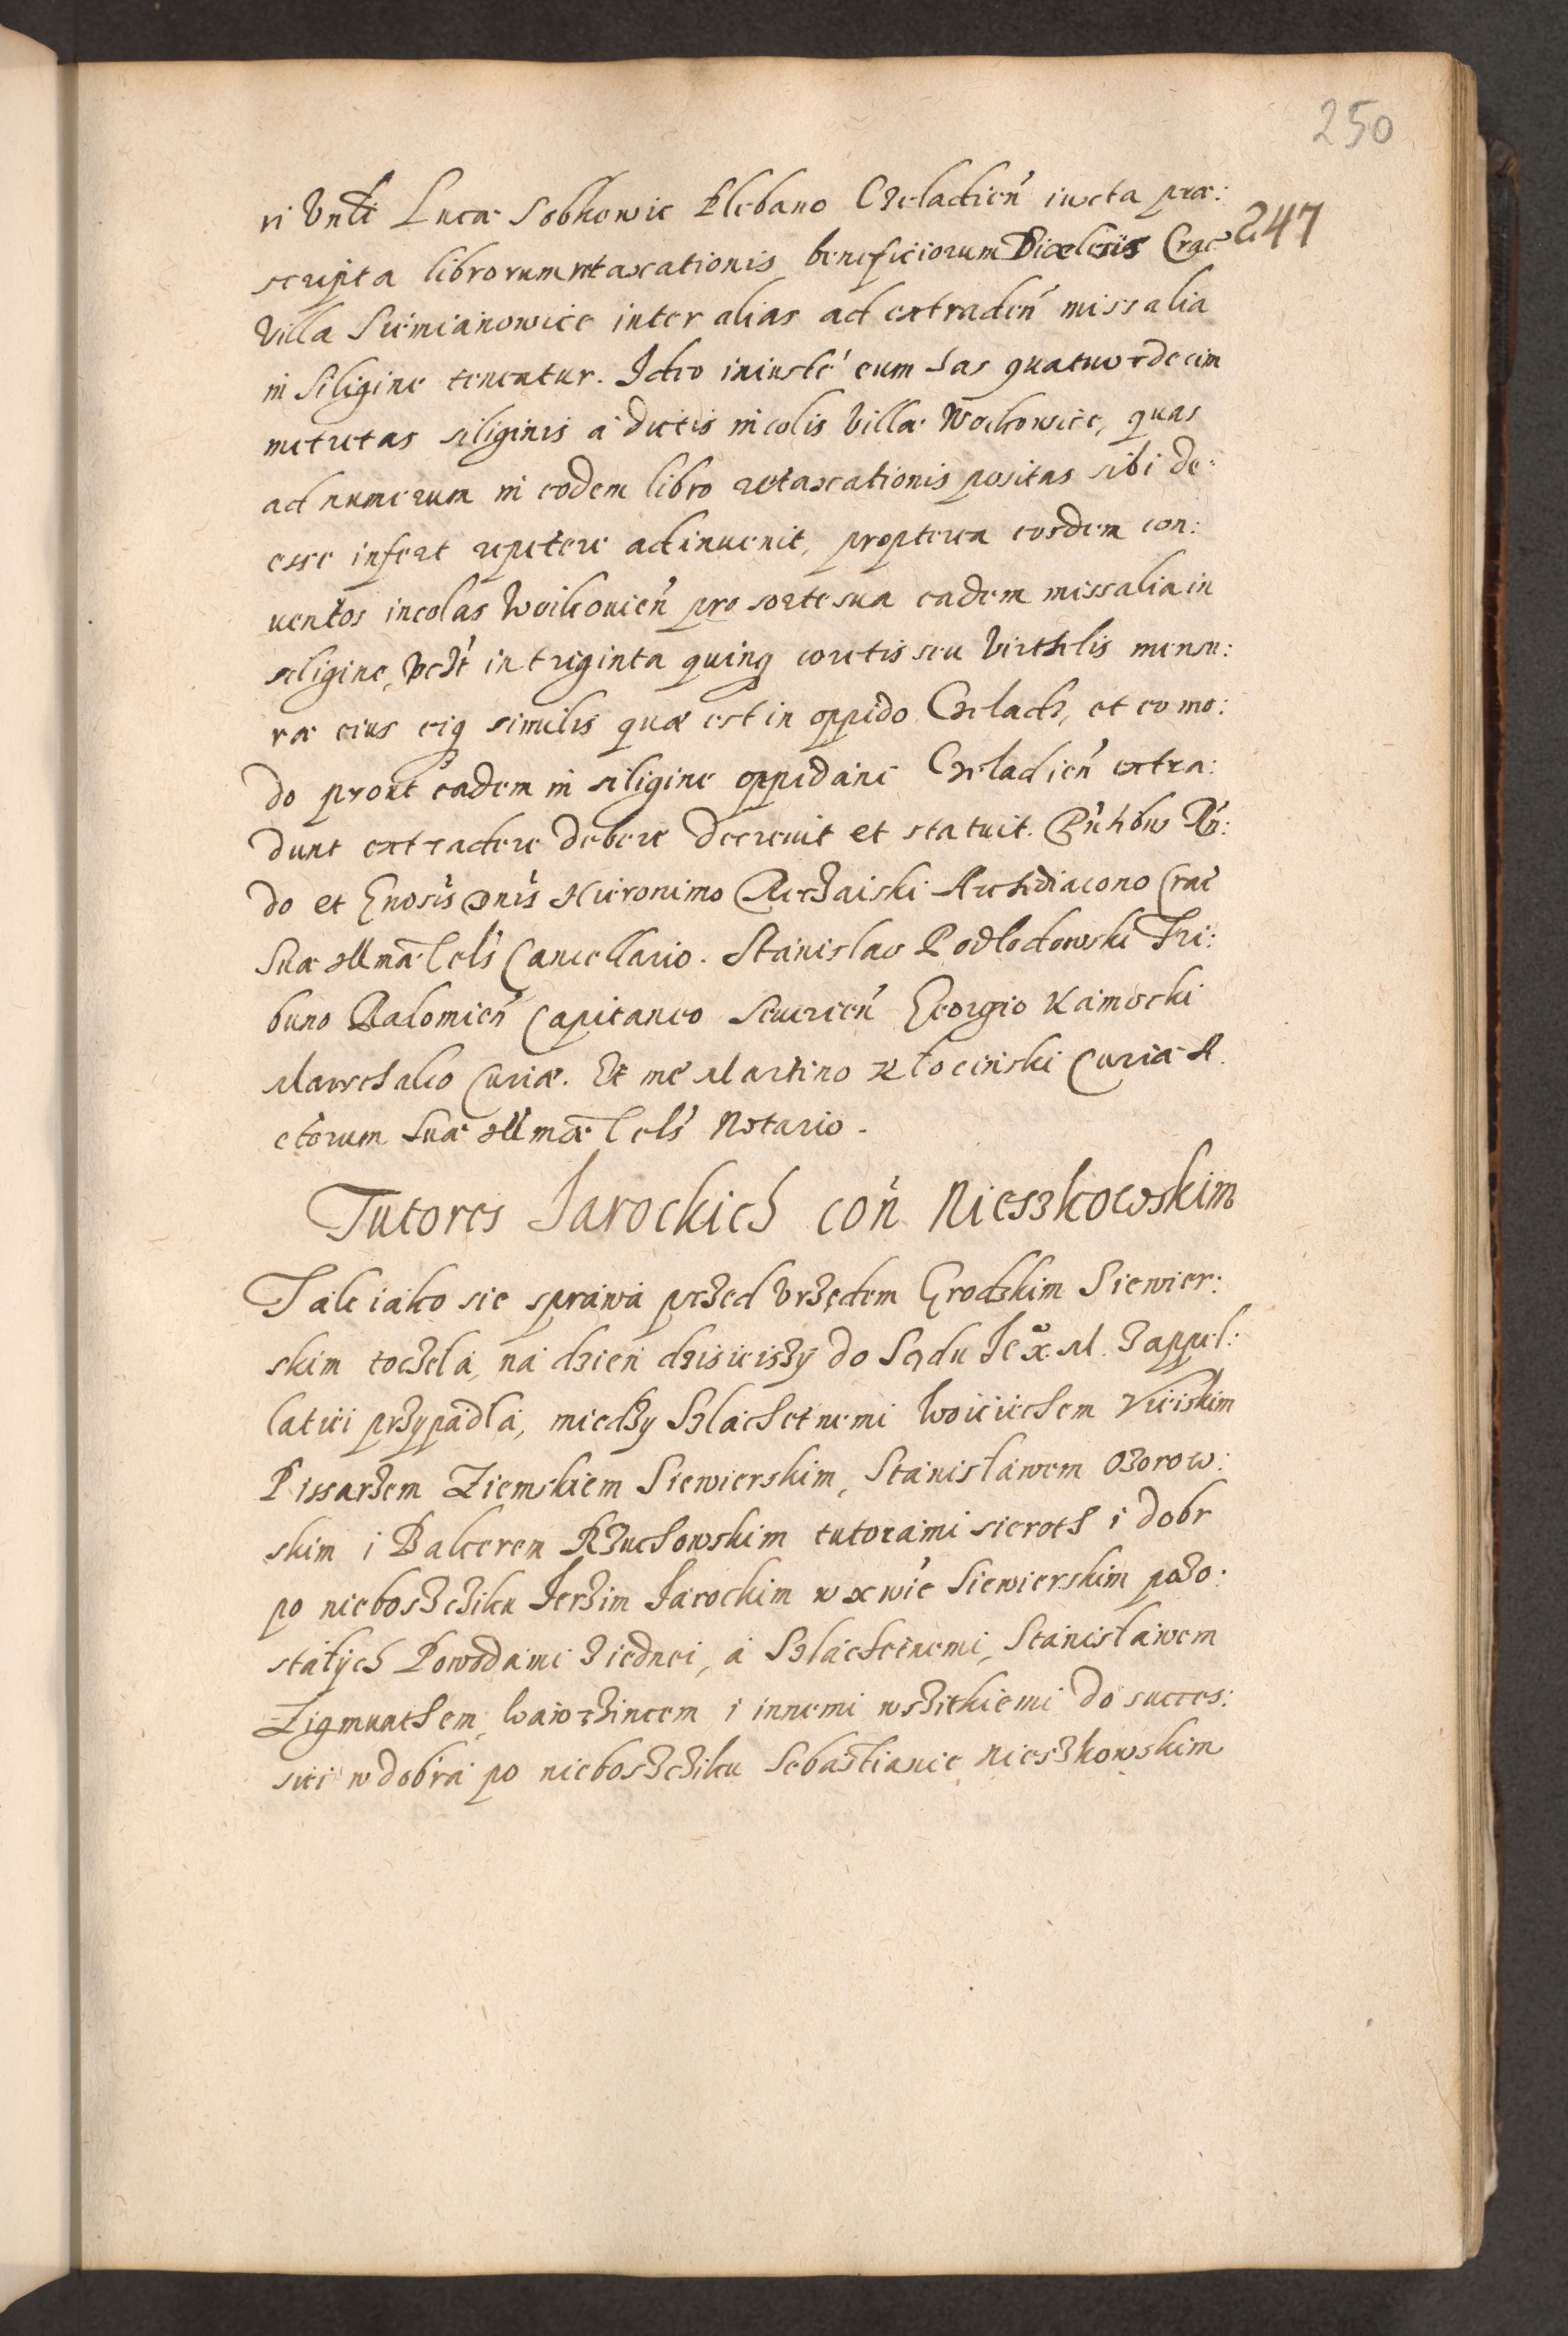 250
ri Vnlı Lucæ Sobkowic Plebano Czeladień iuxta præ:
247
scripta librorum retaxationis beneficiorum Diœcesis Crac
Villa Siemianowice inter alias ad extradeń missalia
in Siligine tenentur. Ideo iniusté eum has quatuordecim
metretas siliginis á dictis incolis Villæ Woikowice, quas
ad numerum in eodem libro retaxationis positas sibi de:
esse infert repetere adinuenit, propterea eosdem con:
uentos incolas Woikouień pro sorte sua eadem missalia in
siligine, in triginta quinq coretis seu Virthelis mensu:
ræ eius eiq similis quæ est in oppido Czeladz, et eo mo:
do prout eadem in siligine oppidani Czeladień extra:
dunt extradere debere decreuit et statuit. Pńtibus Rń:
do et Gnosis Dnis Hieronimo Archidiacono Crac
Suæ Illmæ Cels Cancellario. Stanislao Podlodowski Tri:
buno Radomień Capitaneo Seuerień Georgio Kamocki
Marschalco Curiæ. Et me Martino Kłocinski Curiæ A
ctorum Suæ Illmæ Cels Notario.
Tutores Jarockich coń Nieszkowskim
Tak iako sie sprawa przed Vrzędem Grodzkim Siewier:
skim toczela, na dzien dzisieiszy do Sądu Je X M z appel:
latiei przypadla, miedzy Szlachetnemi Woiciechem Vieiskim
Pissarzem Ziemskiem Siewierskim, Stanisławem Ozorow:
skim i Balcerem Rzuchowskim tutorami sieroth i dobr
po nieboszcziku Jerzim Jarockim w xwie Siewierskim pozo:
stałych Powodami z iednei, a Szlachetnemi, Stanisławem
Zigmunthem, Wawrzincem i innemi wszitkiemi do succes:
siei w dobra po nieboszcziku Sebastianie Nieszkowskim